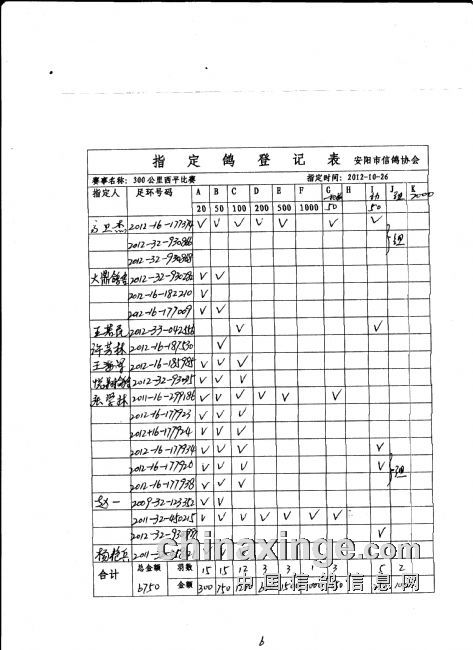 指 定 鸽 登 记 表 安阳市信鸽协会
赛事名称: 300公里西平比赛 指定时间: 2012-10-26
指定人 足环号码 A B C D E F G H I J K
20 50 100 200 500 1000 50 50 2000
2012-16-177374 √ √ √ √ √ √ √
2012-32-930866
组
大鼎鸽舍 2012-32-930286 √ √
2012-16-182210 √
2012-16-177009 √ √
2012-33-042556 √ √
许芳林 2012-16-187530 √
2012-16-185985 √ √ √
2012-32-93095 √ √ √
2011-16-299186 √ √ √ √ √ √
2012-16-177923 √ √ √
2012-16-177924 √ √ √
2012-16-177934 √ √ √ √
2012-16-177920 √ √ √ √
组
2012-16-177938 √ √ √
赵一 2009-32-123352 √ √
2011-32-450215 √ √ √ √ √ √ √
√
2011
合计 总金额 羽数 15 15 12 3 3 1 3 5 2
6750 金额 300 750 1200
chinaxinge.com
中国信鸽信息网
6